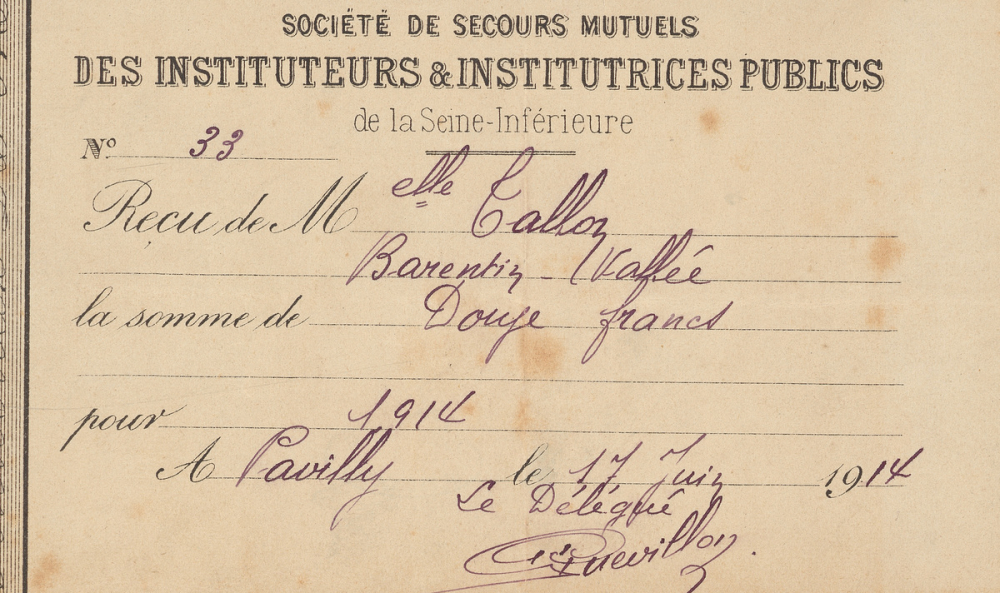 SOCIÉTÉ DE SECOURS MUTUELS
DES INSTITUTEURS & INSTITUTRICES PUBLICS
de la Seine-Inférieure
N° 33
Reçu de Melle Tallon
Barentin - Vallée
la somme de Douze francs
pour 1914
A Pavilly le 17 Juin 1914
Le Délégué
Quevillon